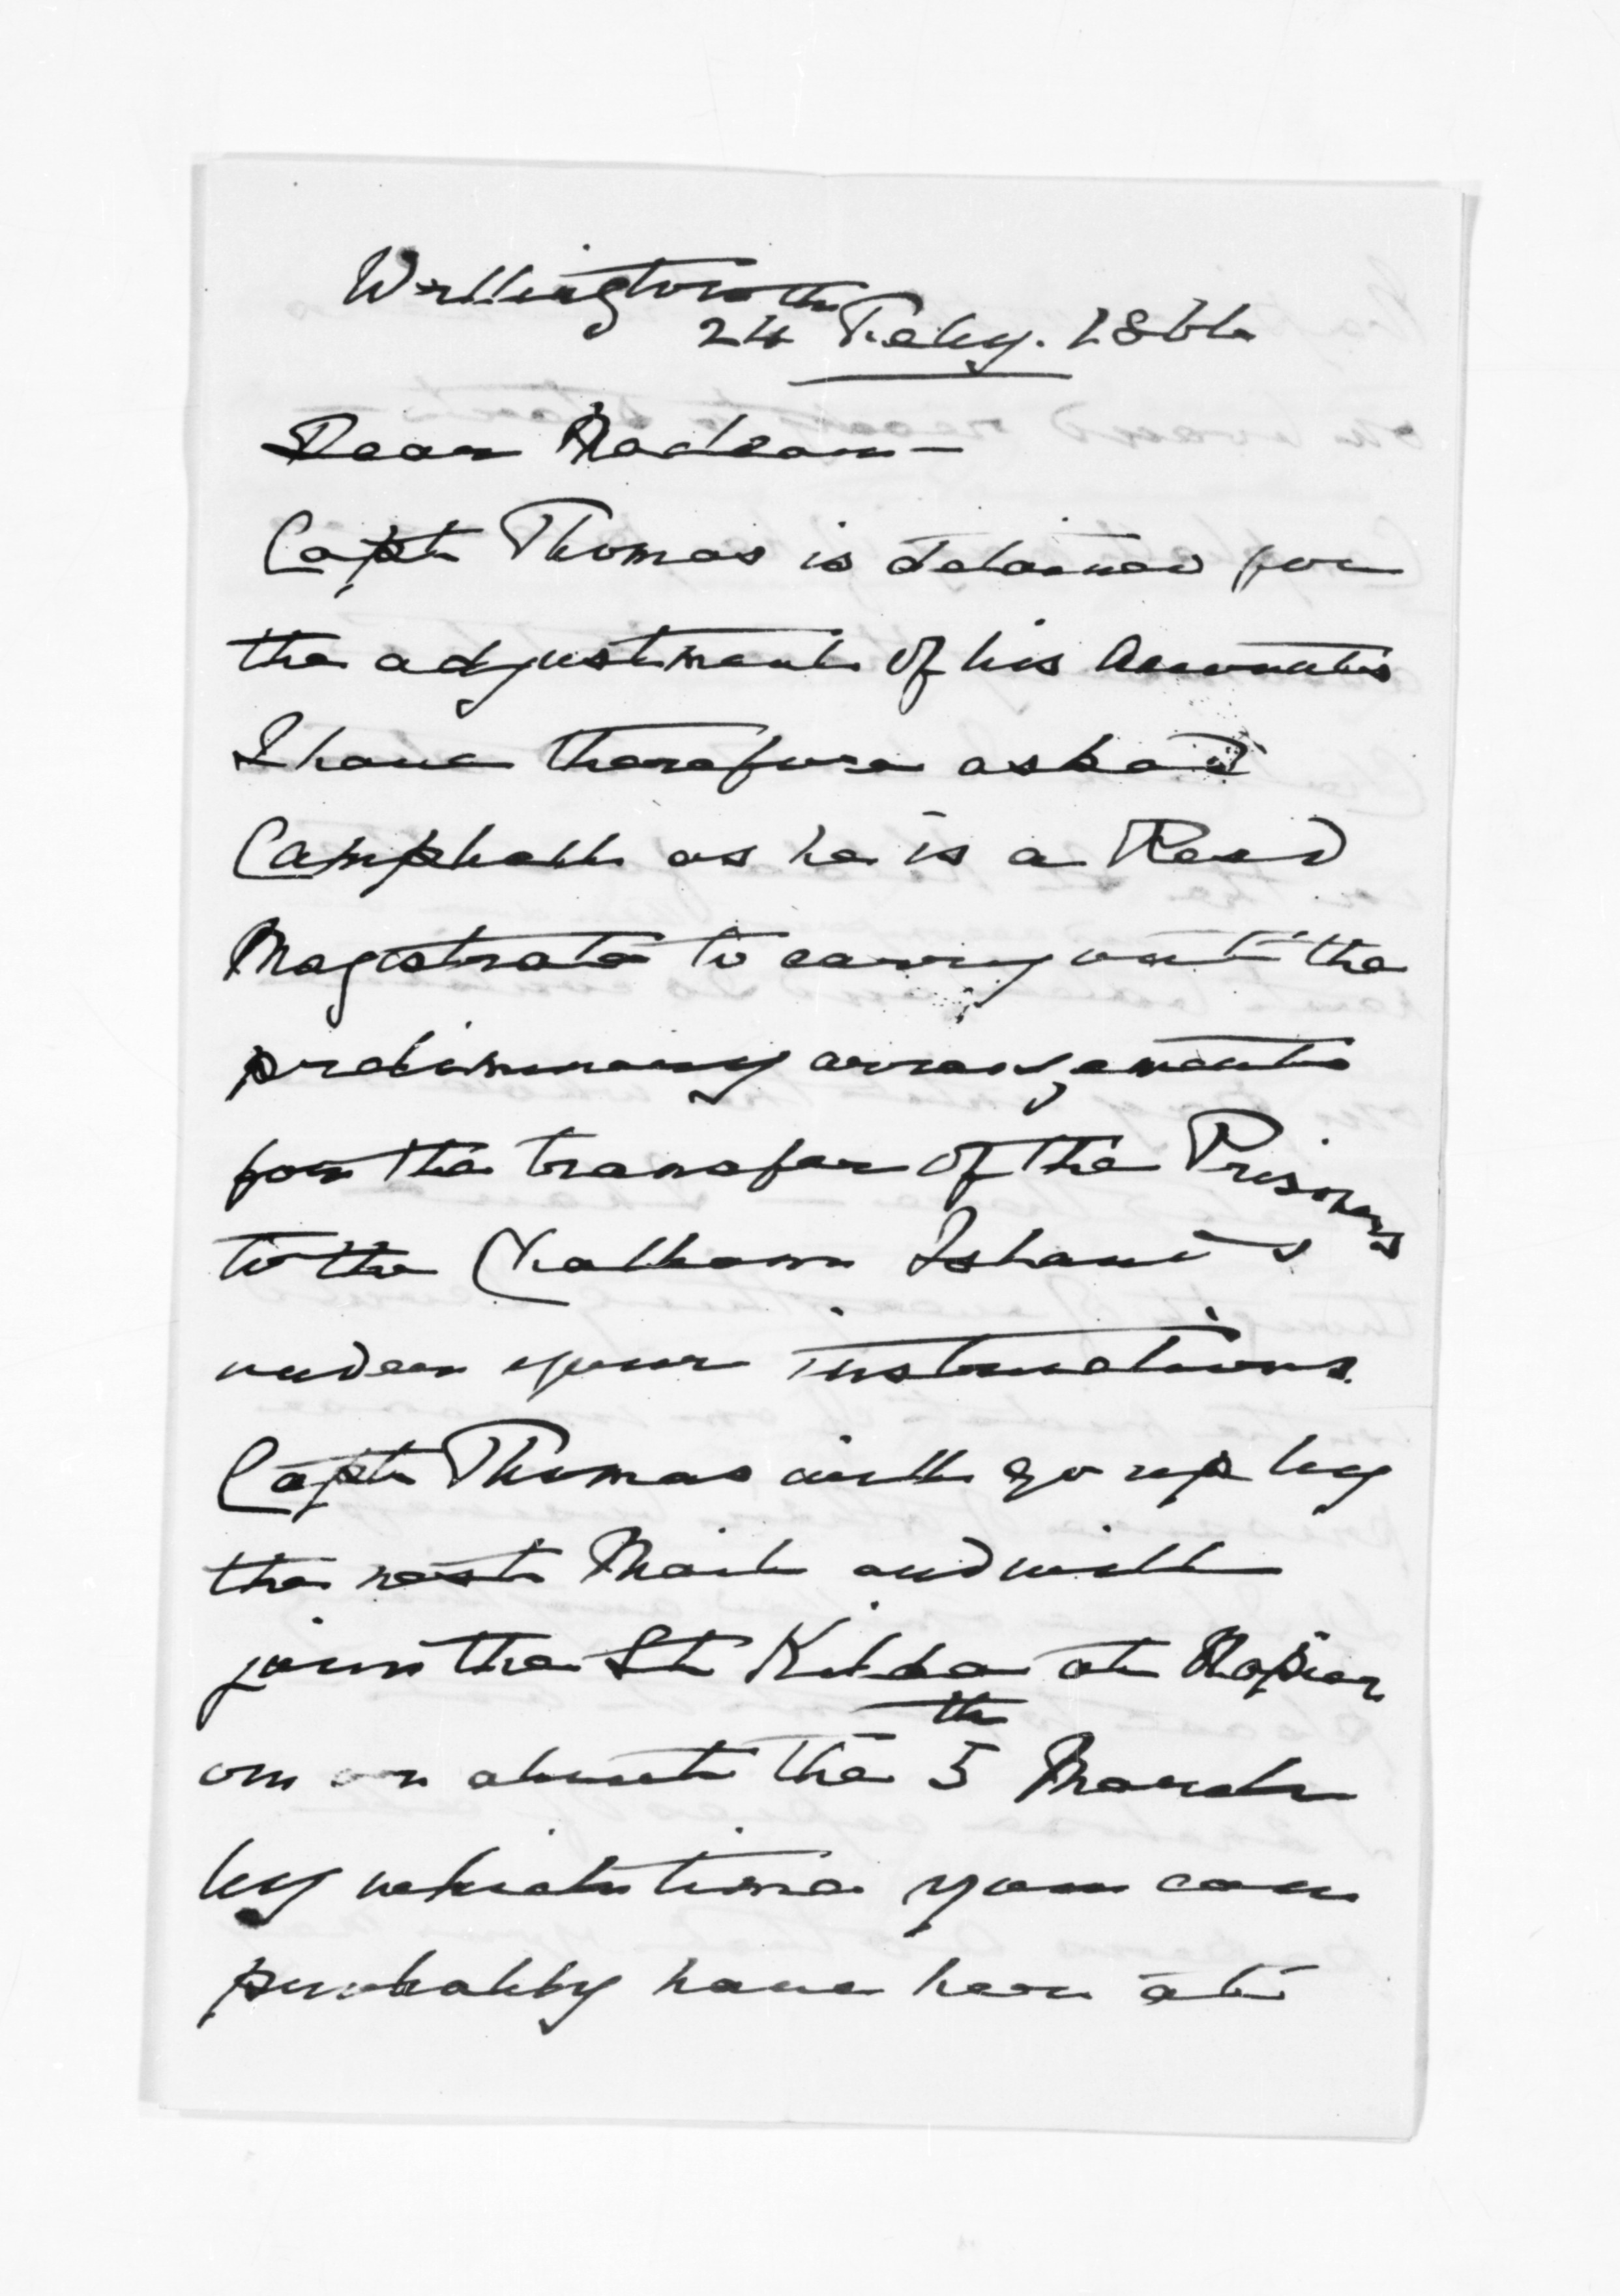 Wellington
24th Feby. 1866
Dear Maclean -
Capt Thomas is detained for
the adjustment of his Accounts
I have therefore asked
Campbell as he is a Resd
Magistrate to carry out the
preliminary arrangements
for the transfer of the Prisoners
to the Chatham Islands
under your instructions.
Capt Thomas will go up by
the next Mail and will
join the St Kilda at Napier
on or about the 5th March
by which time you can
probably have been at